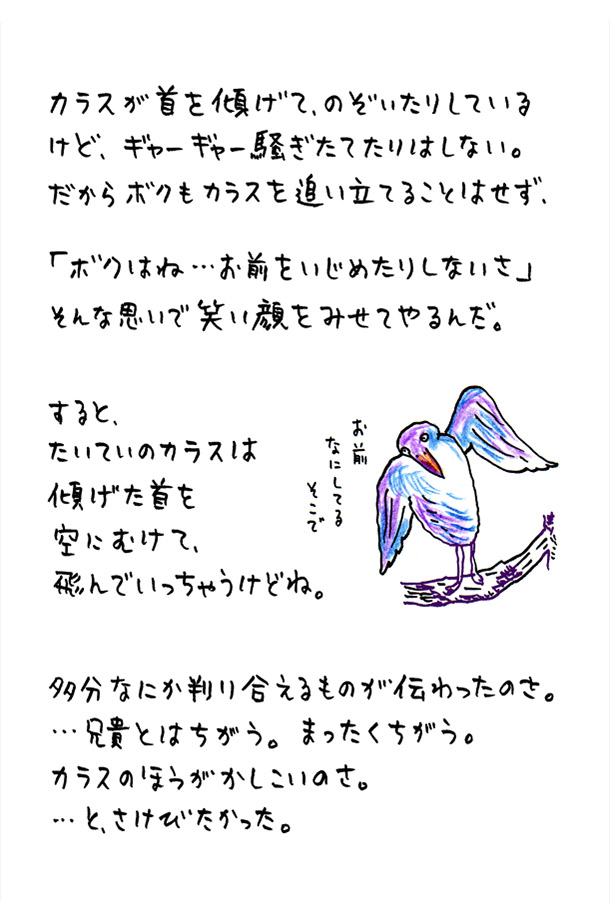 カラスが首を傾げて、のぞいたりしている
けど、ギャーギャー騒ぎたてたりはしない。
だからボクもカラスを追い立てることはせず、
「ボクはね…お前をいじめたりしないさ」
そんな思いで笑い顔をみせてやるんだ。
すると、
たいていのカラスは
傾げた首を
空にむけて、
飛んでいっちゃうけどね。
お前
なにしてる
そこで
多分なにか判り合えるものが伝わったのさ。
…兄貴とはちがう。まったくちがう。
カラスのほうがかしこいのさ。
…と、さけびたかった。